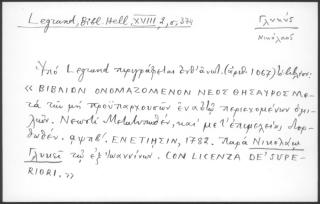 Legrand, Bibl. Hell. XVIII 2, σ. 374
Γλυκύς
Νικόλαος
Ὑπὸ Legrand περιγράφεται ὑπ' (ἀριθ. 1067) τὸ βιβλίον:
«ΒΙΒΛΙΟΝ ΟΝΟΜΑΖΟΜΕΝΟΝ ΝΕΟΣ ΘΗΣΑΥΡΟΣ Με-
τὰ τῶν μὴ προϋπαρχουσῶν ἐν αὐτῷ περιεχομένων ὁμι-
λιῶν. Νεωστὶ Μετατυπωθέν, καὶ μετ' ἐπιμελείας διορ-
θωθέν. αψπβ'. ΕΝΕΤΙΗΣΙΝ, 1782. Παρὰ Νικολάῳ
Γλυκεῖ τῷ ἐξ Ἰωαννίνων. CON LICENZA DE' SUPE-
RIORI.»